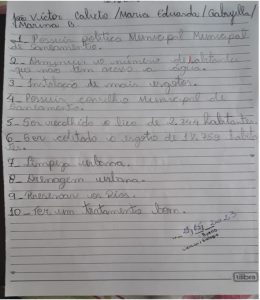 João Victor Calixto/Maria Eduarda/Gabryella/
Mariana B.
1- Possuir política Municipal Municipal
de Saneamento.
2- Diminuir o número de habitantes
que não tem acesso a água.
3- Instalação de mais esgotos.
4- Possuir conselho Municipal de
Saneamento.
5- Ser recolhido o lixo de 2.244 habitantes.
6- Ser coletado o esgoto de 12.759 habitan
tes.
7- Limpeza urbana.
8- Drenagem urbana.
9- Preservar os Rios.
10- Ter um tratamento bom.
tilibra